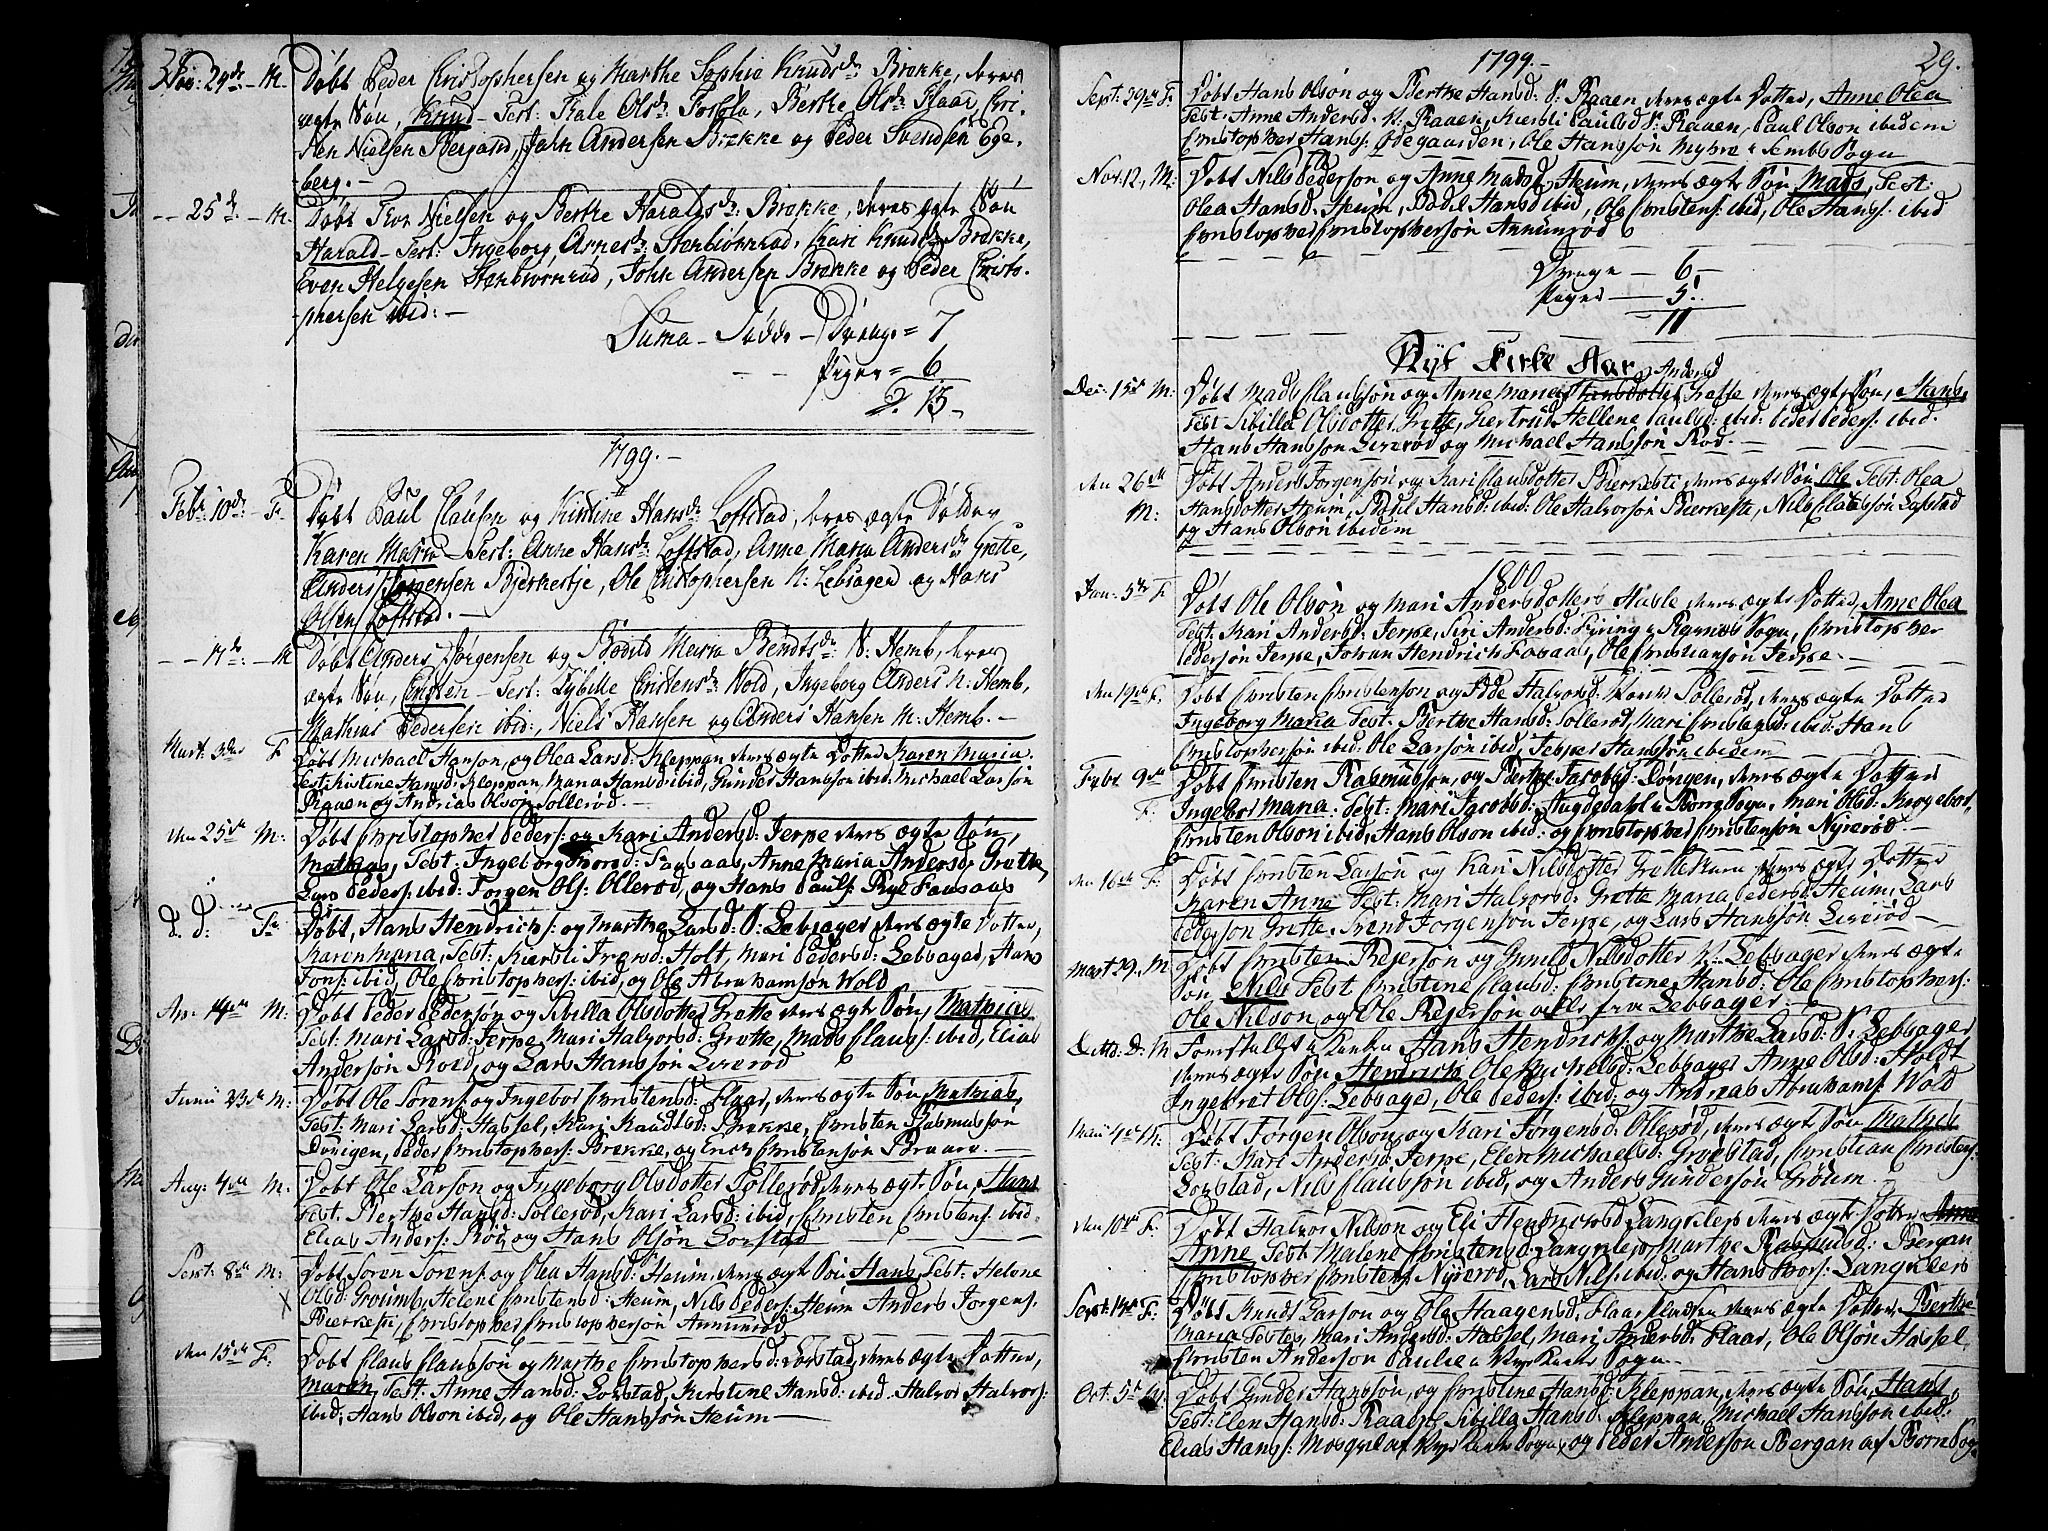 28
Nov: 24de – M. Døbt Peder Christophersen og Marthe Sophia Knudsdr Brekke, deres
ægte Søn, Knud – Test: Olsdr: Berthe Olsdr: Flaar,
Nielsen John Andersen Brekke og Peder Svendsen Ege-
berg. –
– – 25de – M. Døbt Thor Nielsen og Berthe Haraldsdr: Brekke, deres ægte Søn
Harald – Test: Ingeborg Arnesdr: Stenbiørnrød, Kari Knudsdr Brekke,
Even Helgesen Stenbiørnrød, John Andersen Brekke og Peder Christo-
phersen ibid: –
Suma – Fødde – Drenge = 7
– – Piger = 6
15 –
1799. –
Febr: 10de – F. Døbt Paul Clausen og Kirstine Hansdr Loffstad, deres ægte Datter
Karen Maria – Test: Anne Hansdr: Loffstad, Anne Maria Andersdr Grette,
Anders Jørgensen Bjerkestje, Ole Christophersen N: Lebsager og Hans
Olsen Loffstad. –
– – 17de: – M Døbt Anders Jørgensen og Bodild Maria Bendtsdr: N: Hemb, deres
ægte Søn, Christen – Test: Sybille Christensdr: Wold, Ingeborg Anders N: Hemb,
Mathias Pedersen ibid: Niels Hansen og Anders Hansen N: Hemb. –
Mart: 3die F. Døbt Michael Hanson, og Olea Larsd: Kleppan deres ægte Datter Karen Maria.
Test: Kirstine Hansd: Kleppan, Maria Hansd: ibid, Gunder Hansson ibid. Michael Larson
Raaen og Andrias Olson Sollerød. –
den 25de M: Døbt Christopher Peders: og Kari Andersd: Jerpe deres ægte Søn,
Mathias, Test: Ingeborg Fossaas, Anne Maria Andersd: Grette,
Lars Peders: ibid: Jørgen Ols: Ollerød, og Hans Pauls: Rye Fossaas
D. D: F. Døbt, Hans Hendrichs: og Marthe Larsd: N: Lebsager deres ægte Datter,
Karen Maria, Test: Kiersti Holt, Mari Pedersd: Lebsager, Hans
Jons: ibid, Ole Christophers: ibid, og Ole Abrahamsøn Wold
Apr: 14de M: Døbt Peder Pedersøn og Sibilla Olsdotter Grette deres ægte Søn, Mathias
Test: Mari Larsd: Jerpe Mari Halvorsd: Grette, Mads Claus: ibid, Elias
Andersøn Rød, og Lars Hansson Liverød
Junii 23de M: Døbt Ole Sorens: og Ingebor Christensd: Flaar, deres ægte Søn, Mathias,
Test: Mari Larsd: Hassel, Kari Brekke, Christen Rasmussøn
Døvigen, Peder Christophers: Brekke, og Erich Christensøn Braarø. –
Aug: 4de M: Døbt Ole Larson og Ingeborg Olsdotter Sollerød, deres ægte Søn, Hans
Test. Berthe Hansd: Sollerød, Kari Larsd: ibid, Christen Christens: ibid.
Elias Anders: Rød, og Hans Olsøn Lofstad
Sept: 8de M: Døbt Soren Sorens: og Olea Hansd: Heum, deres ægte Søn Hans, Test: Helene
X Olsd: Groums, Helene Christensd: Heum, Nils Peders: Heum Anders Jorgens:
Bierkeste, Christopher Christophersøn Annumrød
den 15de F: Døbt Claus Clausson og Marthe Christophersd: Lofstad, deres ægte Datter,
Maren, Test: Anne Hansd: Lofstad, Kirstine Hansd: ibid. Halvor Halvors:
ibid, Hans Olson ibid, og Ole Hansson Heum –
1799. – 29.
Sept: 29de F. Døbt Hans Olsøn og Berthe Hansd: S: Raaen, deres ægte Datter, Anne Olea
Test: Anne Andersd. N: Raaen, Kiersti Paulsd S: Raaen, Paul Olson ibidem
Christopher Hans: Ødegaarden, Ole Hanssøn Myhre i Sembs Sogn
Nov: 12, M: Døbt Nils Pederson og Anne Madsd Heum, deres ægte Søn Mads, Test:
Olea Hansd. Heum, Bodil Hansd ibid, Ole Christens: ibid, Ole Hans: ibid
Christopher Christophersøn Annumrød
Drenge – 6 –
Piger – 5.
11
Nyt Kirke Aar
Dec: 15de M: Døbt Mads Claussøn og Anne Maria Hansdotter Andersd Grette deres ægte Søn, Hans,
Test Sibilla Olsdotter Grette, Giertrud Hellene Paulsd: ibid: Peder Peders: ibid.
Hans Hansson Liverød og Michael Hanssøn Rød. –
den 26de M: Døbt Anders Jorgensøn og Kari Clausdotter Bierkesti deres ægte Søn Ole Test: Olea
Hansdotter Heum, Bodil Hansd: ibid: Ole Halvorsøn Bierkeste, Nils Claussøn Lofstad
og Hans Olson ibidem
1800
Jan: 5te F. Døbt Ole Olsøn og Mari Andersdotter Hasle deres ægte Datter, Anne Olea
Test: Kari Andersd: Jerpe, Siri Andersd: i Ramnes Sogn, Christopher
Pedersøn Jerpe, Johan Hendrich Fosaas, Ole Christiansøn Jerpe. –
den 19de F. Døbt Christen Christenson og Halvorsd: Sollerød, deres ægte Datter
Ingeborg Maria Test: Berthe Hansd: Sollerød, Mari ibid: Hans
Christophersøn ibid: Ole Larsøn ibid, Jesper Hanssøn ibidem
Febr 9de F. Døbt Christen Rasmusson, og Berthe Jacobsd: Døvigen, deres ægte Datter
Ingebor Maria. Test: Mari Jacobsd: i Borre Sogn, Mari Olsd:
Christen Olson ibid, Hans Olson ibid: og Christopher Christensøn Nyrerød. –
den 16de F: Døbt Christen Larsøn og Kari Nilsdotter deres ægte Datter
Karen Anne Test: Mari Halvorsd: Grette Maria Pedersd: Heum, Lars
Pederson Grette, Jorgensøn Jerpe, og Lars Hanssøn Liverød –
Mart 29. M Døbt Christen Rejerson og Gunild Nilsdotter N: Lebsager deres ægte
Søn, Nils Test Christine Clausd: Christine Hansd: Ole Christophers:
Ole Nilson og Ole Rejersøn alle fra Lebsager: –
Ditto D: M Fremstillet i Kirken Hans Hendrichs: og Marthe Larsd: N: Lebsager
deres ægte Søn Hendrich Ole Lebsager Anne Olsd: Holdt
Ingebret Ols: Lebsager, Ole Peders: ibid: og Andreas Abrahams: Wold
Maii 4de M: Døbt Jørgen Olson og Kari Jørgensd: Ollerød, deres ægte Søn Mathis
Test: Kari Andersd: Jerpe, Elen Michaelsd: Groestad, Christian Christens:
Lofstad, Nils Clausson ibid, og Anders Gundersøn Grøum.
den 10de F: Døbt Halvor Nilson og Eli Hendrichsd Langvlers deres ægte Datter Anne
Anne Test Malene Christensd: Marthe Rasmusd: Bergan
Christopher Christens: Nyrerød, Lars Nils: ibid: og Hans Langvlers
Sept: 14de F: Døbt Knud Larson og Ole Haagensd: Flaar deres ægte Datter, Berthe
Maria Testes, Mari Andersd: Hassel, Mari Andersd: Flaar, Ole Olsøn Hassel,
Christen Anderson Paulie i Nyekirke Sogn –
Oct: 5te M: Døbt Gunder Hanssøn, og Christine Hansd: Kleppan, deres ægte Søn, Hans,
Test: Elen Hansd: Raaen, Sibilla Hansd: Kleppan, Michael Hanssøn ibid:
Elias Hans: af Nyekirke Sogn, og Peder Anderson Bergan af Borre Sogn